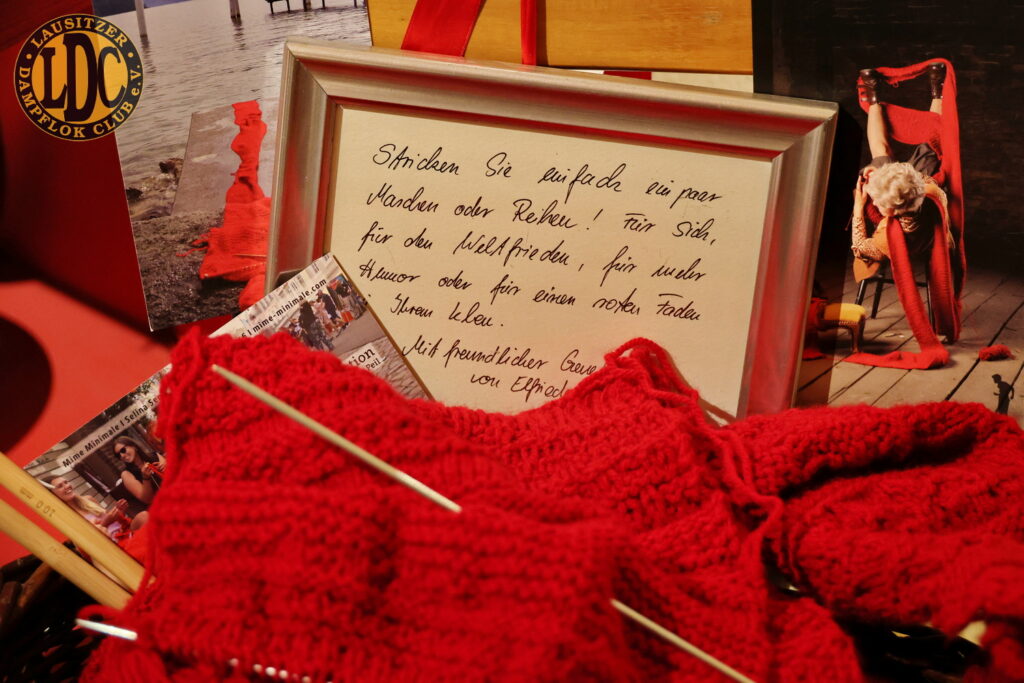 LAUSITZER
LDC
DAMPFLOK CLUB e.V.
Stricken Sie einfach ein paar
Maschen oder Reihen! Für Sich,
für den Weltfrieden, für mehr
Humor oder für einen roten Faden
Ihren Leben.
Mit freundlicher
von Elfried
mime-minimale.com
Mime Minimale | Selina